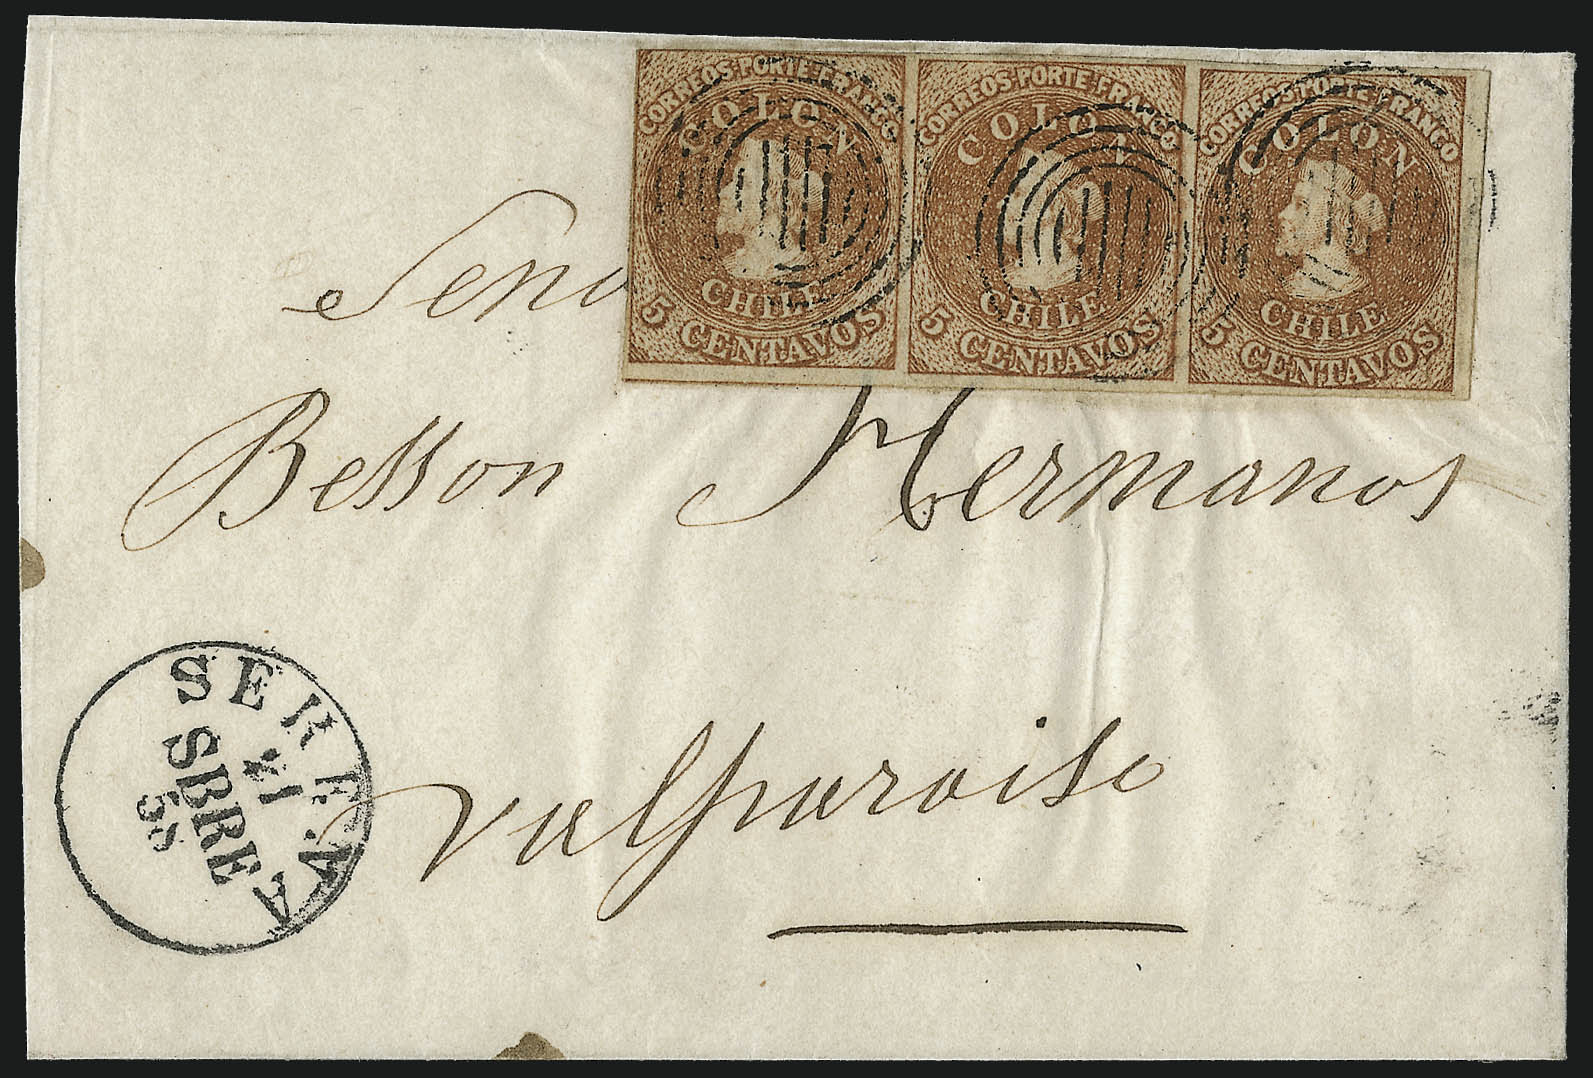 CORREOS·PORTE·FRANCO CORREOS·PORTE·FRANCO CORREOS·PORTE·FRANCO
COLON COLON COLON
CHILE CHILE CHILE
5 CENTAVOS 5 CENTAVOS 5 CENTAVOS
Seno
Besson Hermanos
Valparaiso
SERENA
SBRE
58